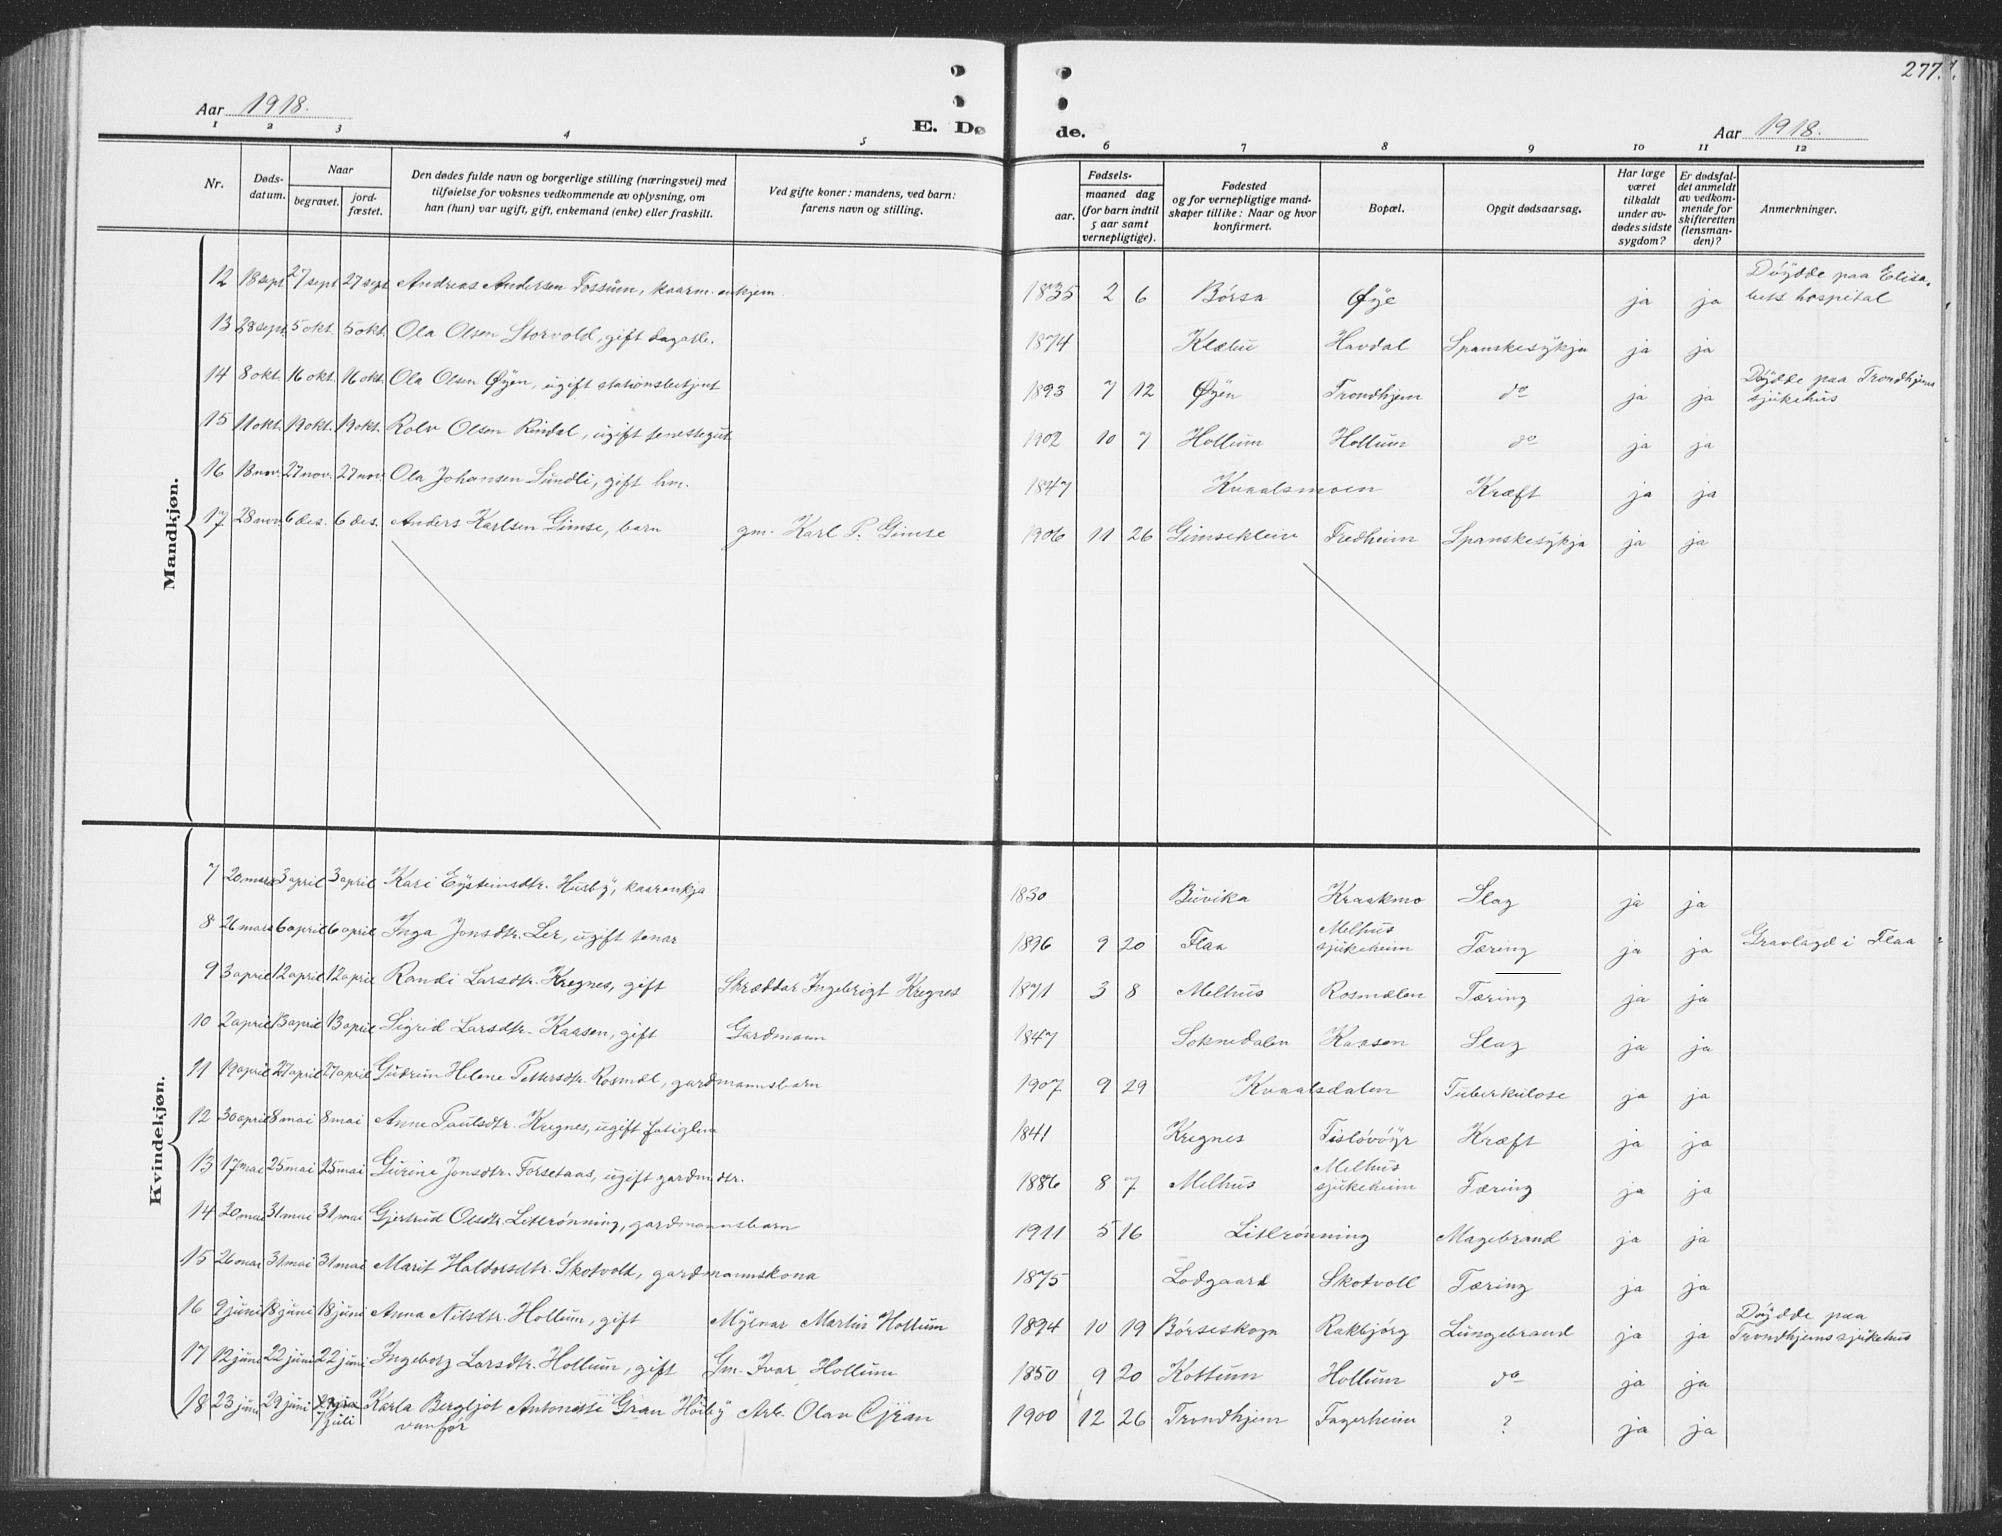 277.
Aar 1918.
E. Dø de.
Aar 1918.
1 2 3 4 5 6 7 8 9 10 11 12
Nr.
Døds-
datum.
Naar
begravet.
jord-
fæstet.
Den dødes fulde navn og borgerlige stilling (næringsvei) med
tilføielse for voksnes vedkommende av oplysning, om
han (hun) var ugift, gift, enkemand (enke) eller fraskilt.
Ved gifte koner: mandens, ved barn:
farens navn og stilling.
Fødsels-
aar.
maaned dag
(for barn indtil
5 aar samt
vernepligtige).
Fødested
og for vernepligtige mand-
skaper tillike: Naar og hvor
konfirmert.
Bopæl.
Opgit dødsaarsag.
Har læge
været
tilkaldt
under av-
dødes sidste
sygdom?
Er dødsfal-
det anmeldt
av vedkom-
mende for
skifteretten
(lensman-
den)?
Anmerkninger.
Mandkjøn.
12 18 sept 27 sept 27 sept Andreas Andersen Fossum, kaarm. enkjem. 1835 2 6 Børsa Øye ja ja Døydde paa Elisa-
bets hospital
13 28 sept. 5 okt. 5 okt. Ola Olsen Storvold, gift dagarb. 1874 Klæbu Havdal Spanskesykja ja ja
14 8 okt. 16 okt. 16 okt. Ola Olsen Øyen, ugift stationsbetjent 1893 7 12 Øyen Trondhjem do ja ja Døydde paa Trondhjems
sjukehus
15 11 okt. 19 okt. 19 okt. Rolv Olsen Rindal, ugift tenestegut. 1902 10 7 Hollum Hollum do ja ja
16 18 nov. 27 nov. 27 nov. Ola Johansen Sundli, gift hm. 1847 Kvaalsmoen Kræft ja ja
17 28 nov. 6 des. 6 des. Anders Karlsen Gimse, barn gm. Karl P. Gimse 1906 11 26 Gimsekleiv Fredheim Spanskesykja ja ja
Kvindekjøn.
7 20 mars 3 april 3 april Kari Eysteinsdtr. Husby, kaarenkja 1830 Buvika Kraakmo Slag ja ja
8 26 mars 6 april 6 april Inga Jonsdtr. Ler, ugift tenar 1896 9 20 Flaa Melhus
sjukeheim Tæring ja ja Gravlagd i Flaa
9 3 april 12 april 12 april Randi Larsdtr. Kregnes, gift Skræddar Ingebrigt Kregnes 1871 3 8 Melhus Rosmælen Tæring ja ja
10 2 april 13 april 13 april Sigrid Larsdtr. Kaasen, gift Gardmann 1847 Soknedalen Kaasen Slag ja ja
11 19 april 27 april 27 april Gudrun Helene Pettersdtr. Rosmæl, gardmannsbarn 1907 9 29 Kvaalsdalen Tuberkulose ja ja
12 30 april 8 mai 8 mai Anne Paulsdtr. Kregnes, ugift fatiglem 1841 Kregnes Tisløvøyr Kræft ja ja
13 17 mai 25 mai 25 mai Gurine Jonsdtr. Forsetaas, ugift gardmdtr. 1886 8 7 Melhus Melhus
sjukeheim Tæring ja ja
14 20 mai 31 mai 31 mai Gjertrud Olsdtr. Litlrønning, gardmannsbarn 1911 5 16 Litlrønning Magebrand ja ja
15 26 mai 31 mai 31 mai Marit Haldorsdtr. Skotvoll, gardmannskona 1875 Lodgaard Skotvoll Tæring ja ja
16 9 juni 18 juni 18 juni Anna Nilsdtr. Hollum, gift Mylnar Martin Hollum 1894 10 19 Børseskogn Rakbjørg Lungebrand ja ja Døydde paa
Trondhjems sjukehus
17 12 juni 22 juni 22 juni Ingeborg Larsdtr. Hollum, gift Gm. Ivar Hollum 1850 9 20 Kottum Hollum do ja ja
18 23 juni 29 juni 7 juli Karla Bergljot Antonette Gran Høiby Arb. Olav Gran 1900 12 26 Trondhjem Fagerheim ? ja ja
vanfør